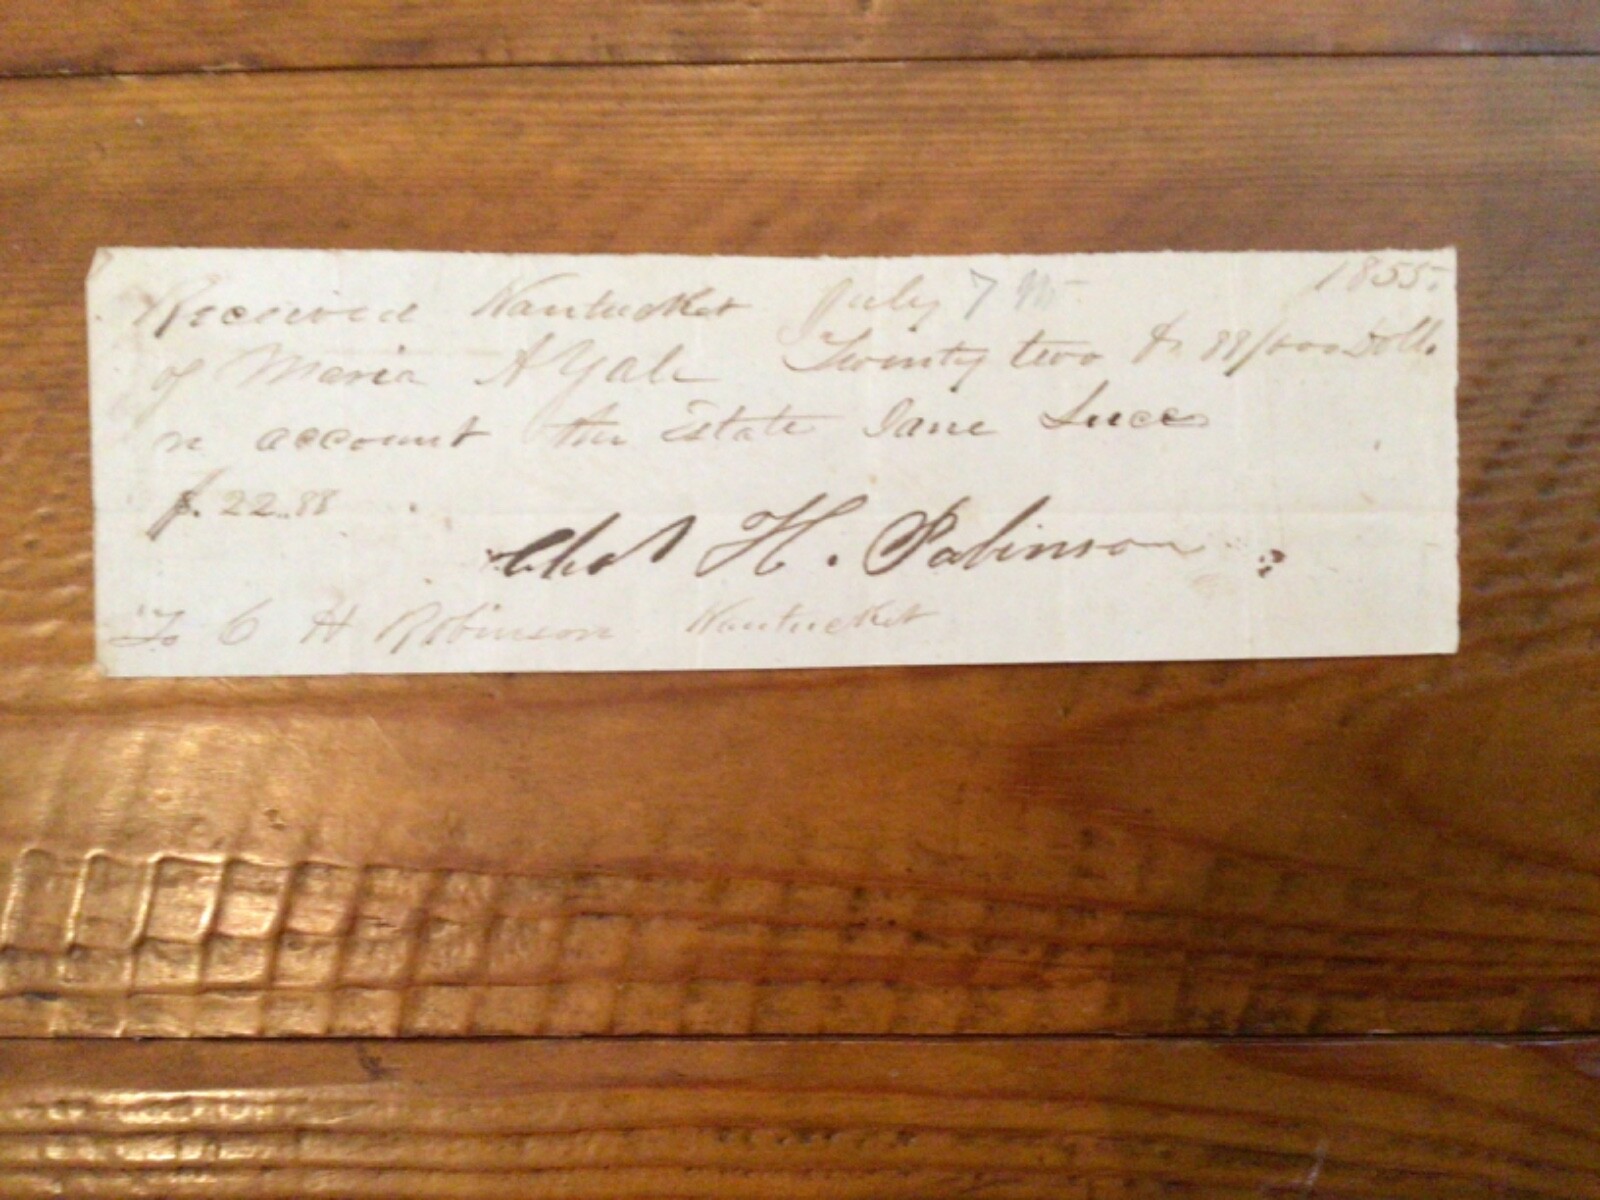 Received Nantucket July 7 1855.
of Maria A Yale Twenty two & 88/100 Doll.
n account the Estate Jane Luce
$. 22..88
Chas H. Robinson
To C H Robinson Nantucket